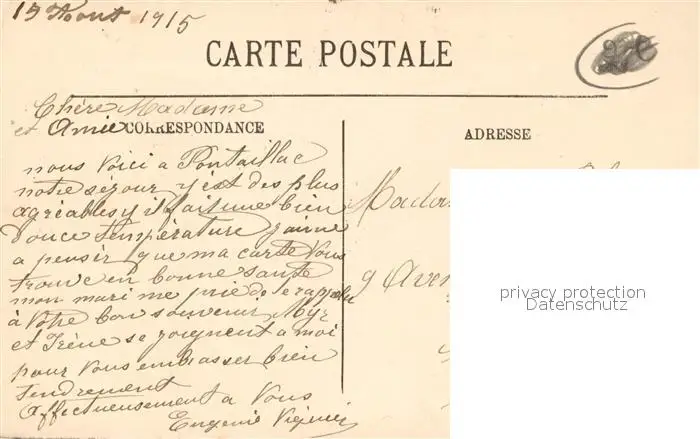 15 Aout 1915
CARTE POSTALE
Chère Madame
et Amie
CORRESPONDANCE
ADRESSE
nous voici a Pontaillac
notre séjour y est des plus
agréables y il fait une bien
douce température j'aime
a penser que ma carte vous
trouve en bonne santé
mon mari me prie de le rappeler
à votre bon souvenir
et Irène se joignent a moi
pour vous embrasser bien
tendrement
affectueusement a vous
Eugenie Viguier
Madam
9 Aven
privacy protection
Datenschutz